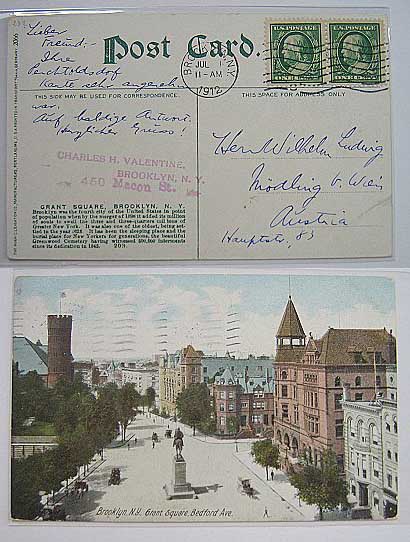 Post Card.
Lieber
Freund:-
Ihre
Perchtoldsdorf
Karte sehr angenehm
war.
Auf baldige Antwort.
Herzlicher Gruss!
THIS SIDE MAY BE USED FOR CORRESPONDENCE.
THIS SPACE FOR ADDRESS ONLY
BROOKLYN, N.Y.
JUL 1
11-AM
1912
U.S. POSTAGE
U.S. POSTAGE
CHARLES H. VALENTINE,
BROOKLYN, N. Y.
450 Macon St.
GRANT SQUARE, BROOKLYN, N. Y.
Brooklyn was the fourth city of the United States in point
of population when by the merger of 1898 it added its million
of souls to swell the three and three-quarters million of
Greater New York. It was also one of the oldest, being set-
tled in the year 1623. It has been the sleeping place and the
burial place for New Yorkers for generations, the beautiful
Greenwood Cemetery having witnessed 300,000 interments
since its dedication in 1842.
Herrn Wilhelm Ludwig
Mödling b. Wien
Austria
Hauptstr. 83
Brooklyn, N.Y. Grant Square, Bedford Ave.